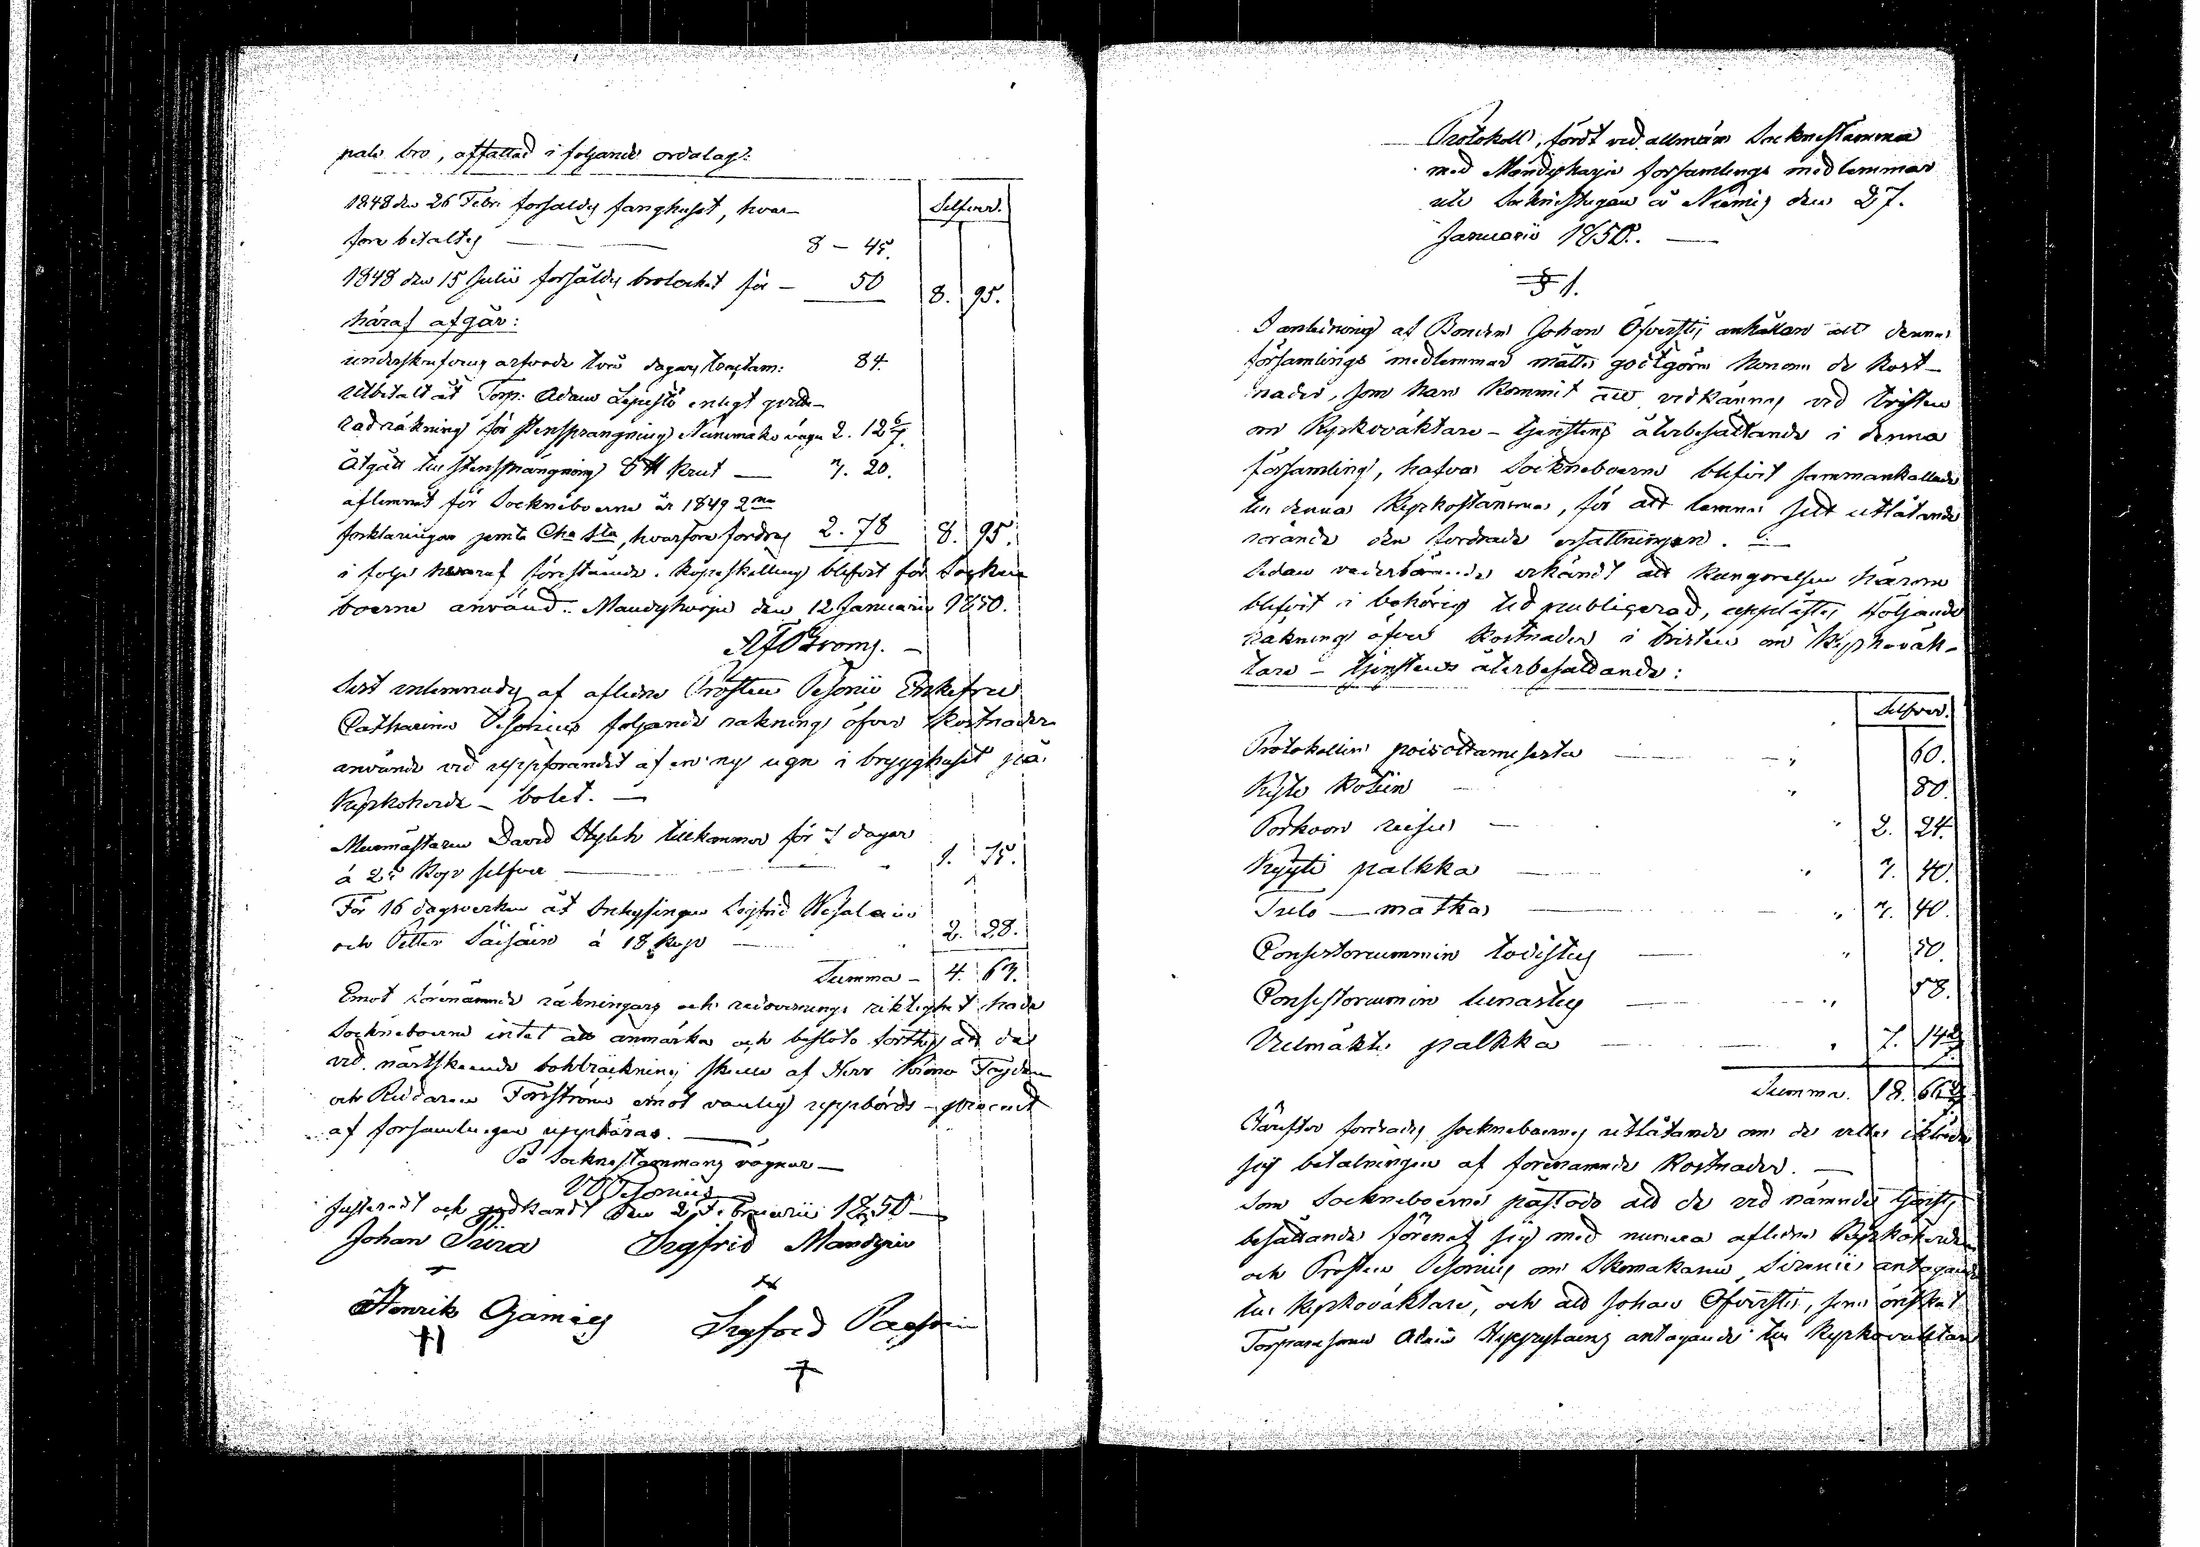 pala bro, affattad i foljande ordalag:
Silfver.
1848 den 26 Febr: forsaldes fanghuset, hvar-
fore betaltes 8 - 45.
1848 den 15 Julii forsäldes brolocket för - 50 8. 95.
häraf afgår:
underskrefvens arfvode två dagars tractam: 84.
utbetalt åt Torp: Adam Lepistö enligt qvitte-
rad räkning för stensprangning Niinimäki vägen 2. 12 6/7.
Åtgått till stensprängning 8 ℔ krut — 3. 20.
aflemnat för Sockneboerne år 1849 2ne
forklaringar jemte Cha Sta, hvarfore fordras 2. 78 8. 95.
i folje hvaraf förestående Kopeskilling blifvit för Sockne
boerne använd. Mandyharju den 12 Januarii 1850.
A F Broms. —
Sist inlemnades af aflidne Prosten Pesonii Enkefru
Catharina Pesonius foljande rakning öfver Kostnader
använde vid uppforandet af en ny ugn i brygghuset på
Kyrkoherde-bolet. —
Murmästaren David Hylen tillkommer för 7 dagar
á 25 Kop silfver 1. 75.
För 16 dagsverken åt Inhysingen Sigfrid Wesalain
och Petter Säisäin á 18 Kop 2. 88.
Summa - 4. 63.
Emot förenämnde räkningars och redovisnings riktighet hade
Sockneboerne intet att anmärka och besloto förthy att de
vid nästskeende bokbräckning skulle af Herr
och Rudaren Forsström emot vanlig uppbörds-procent
af forsamlingen uppbäras.
På Socknestämmans vägnar —
Pesonius
Justeradt och godkandt den 2 Februarii 1850 —
Johan Piira Sigfrid Mandyin
Henrik Ojamies Sigfred Paasoin
Protokoll, fördt vid allmän Socknestämma
med Mändyharju forsamlings medlemmar
uti Socknestugan å Niemis den 27.
Januarii 1850. —
§ 1.
I anledning af Bonden Johan Öfverstis anhållan att denna
församlings medlemmar måtte godtgöra honom de Kost-
nader, som han kommit att vidkännas vid tvisten
om Kyrkoväktare-tjenstens återbesättande i denna
församling, hafva Sockneboerne blifvit sammankallade
till denna Kyrkostämma, för att lemna sitt utlåtande
rörande den fordrade ersattningen. —
Sedan vederbörande erkändt att Kungorelsen härom
blifvit i behörig tid publicerad, upplästes följande
räkning öfver Kostnader i tvisten om Kyrkoväk-
tare-tjenstens återbesättande:
Silfver.
Protokollin poisottamisesta 60.
Kyla Kotiin 80.
Porkoon reisu 2. 24.
Kyyti palkka 3. 40.
Tulo — matka 3. 40.
Consistoriummin todistus 50.
Consistoriumin lunastus 58.
Wielmäkti palkka 7. 14 2/7.
Summa. 18. 66 2/7
Härefter fordrades sockneboernes utlåtande om de ville ikläda
sig betalningen af förenämnde Kostnader. —
Som Sockneboerne påstodo att de vid nämnde tjensts
besättande förenat sig med numera aflidne Kyrkoherden
och Prosten Pesonius om Skomakaren Sirenii antagande
till Kyrkoväktare, och att Johan Öfversti, som önskat
Torparesonen Adam Hyyryläins antagande till Kyrkovaktare